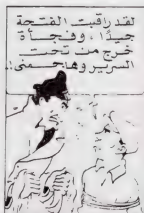 لقد راقبت الفتحة
جيدًا، وفجأة
خرج من تحت
السرير وهاجمنى!!